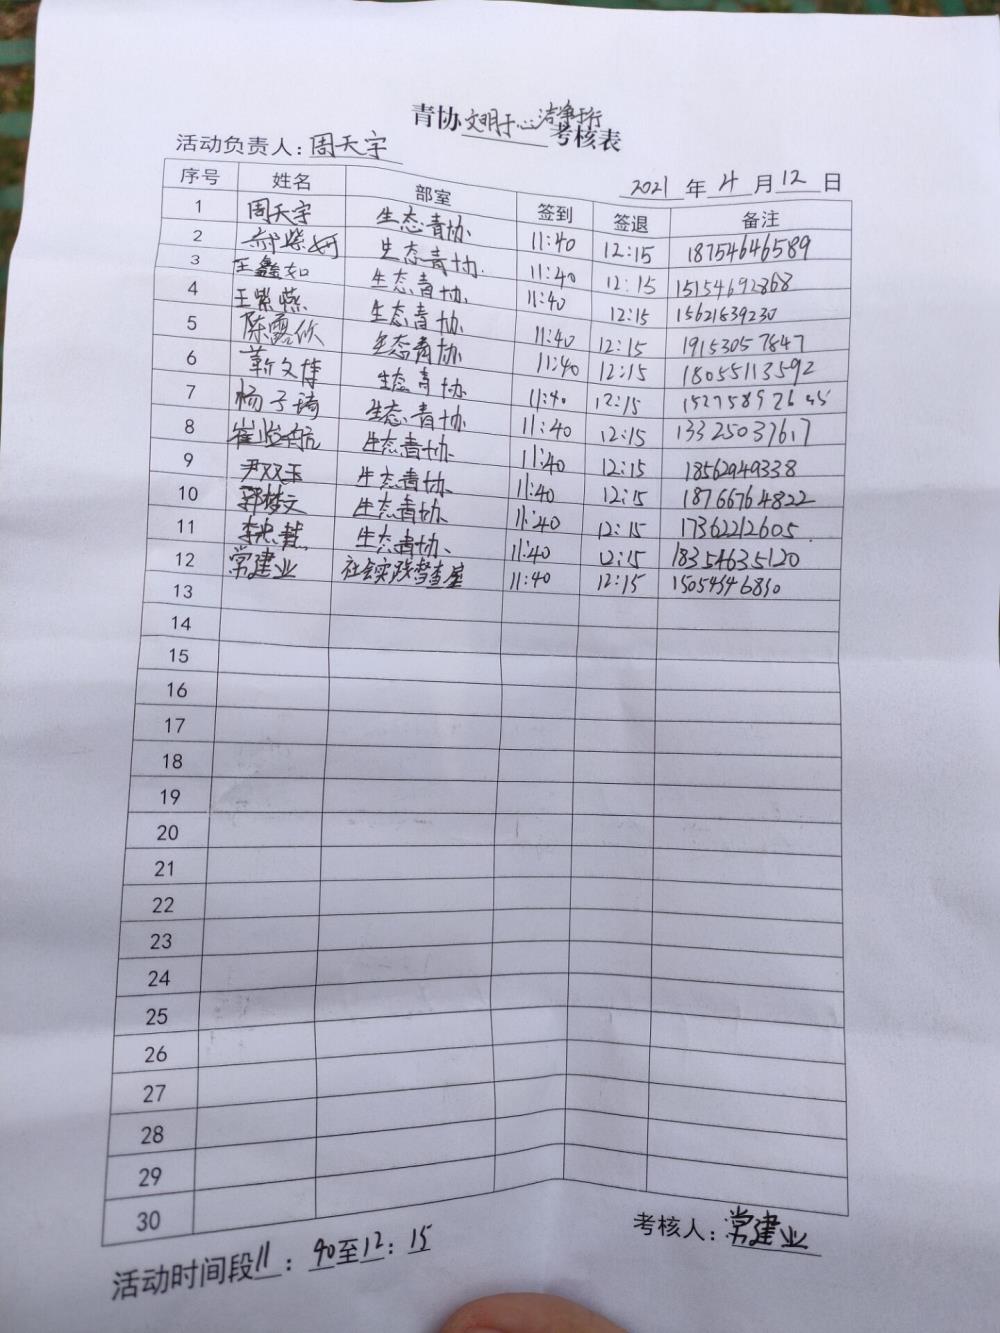 青协文明于心洁净于行考核表
活动负责人：周天宇
2021 年 4 月 12 日
序号 姓名 部室 签到 签退 备注
1 周天宇 生态青协 11:40 12:15 18754646589
2 郝紫妍 生态青协 11:40 12:15 15154692868
3 王鑫如 生态青协 11:40 12:15 15621839230
4 王紫 生态青协 11:40 12:15 19153057847
5 陈露欣 生态青协 11:40 12:15 18055113592
6 靳文博 生态青协 11:40 12:15
7 杨子琦 生态青协 11:40 12:15 13325037617
8 崔 航 生态青协 11:40 12:15 18562949338
9 尹双玉 生态青协 11:40 12:15 18766764822
10 郭梦文 生态青协 11:40 12:15 17362212605
11 李忠 生态青协 11:40 12:15 18354635120
12 常建业 社会实践督查室 11:40 12:15
13
14
15
16
17
18
19
20
21
22
23
24
25
26
27
28
29
30
考核人：常建业
活动时间段11：40至12：15